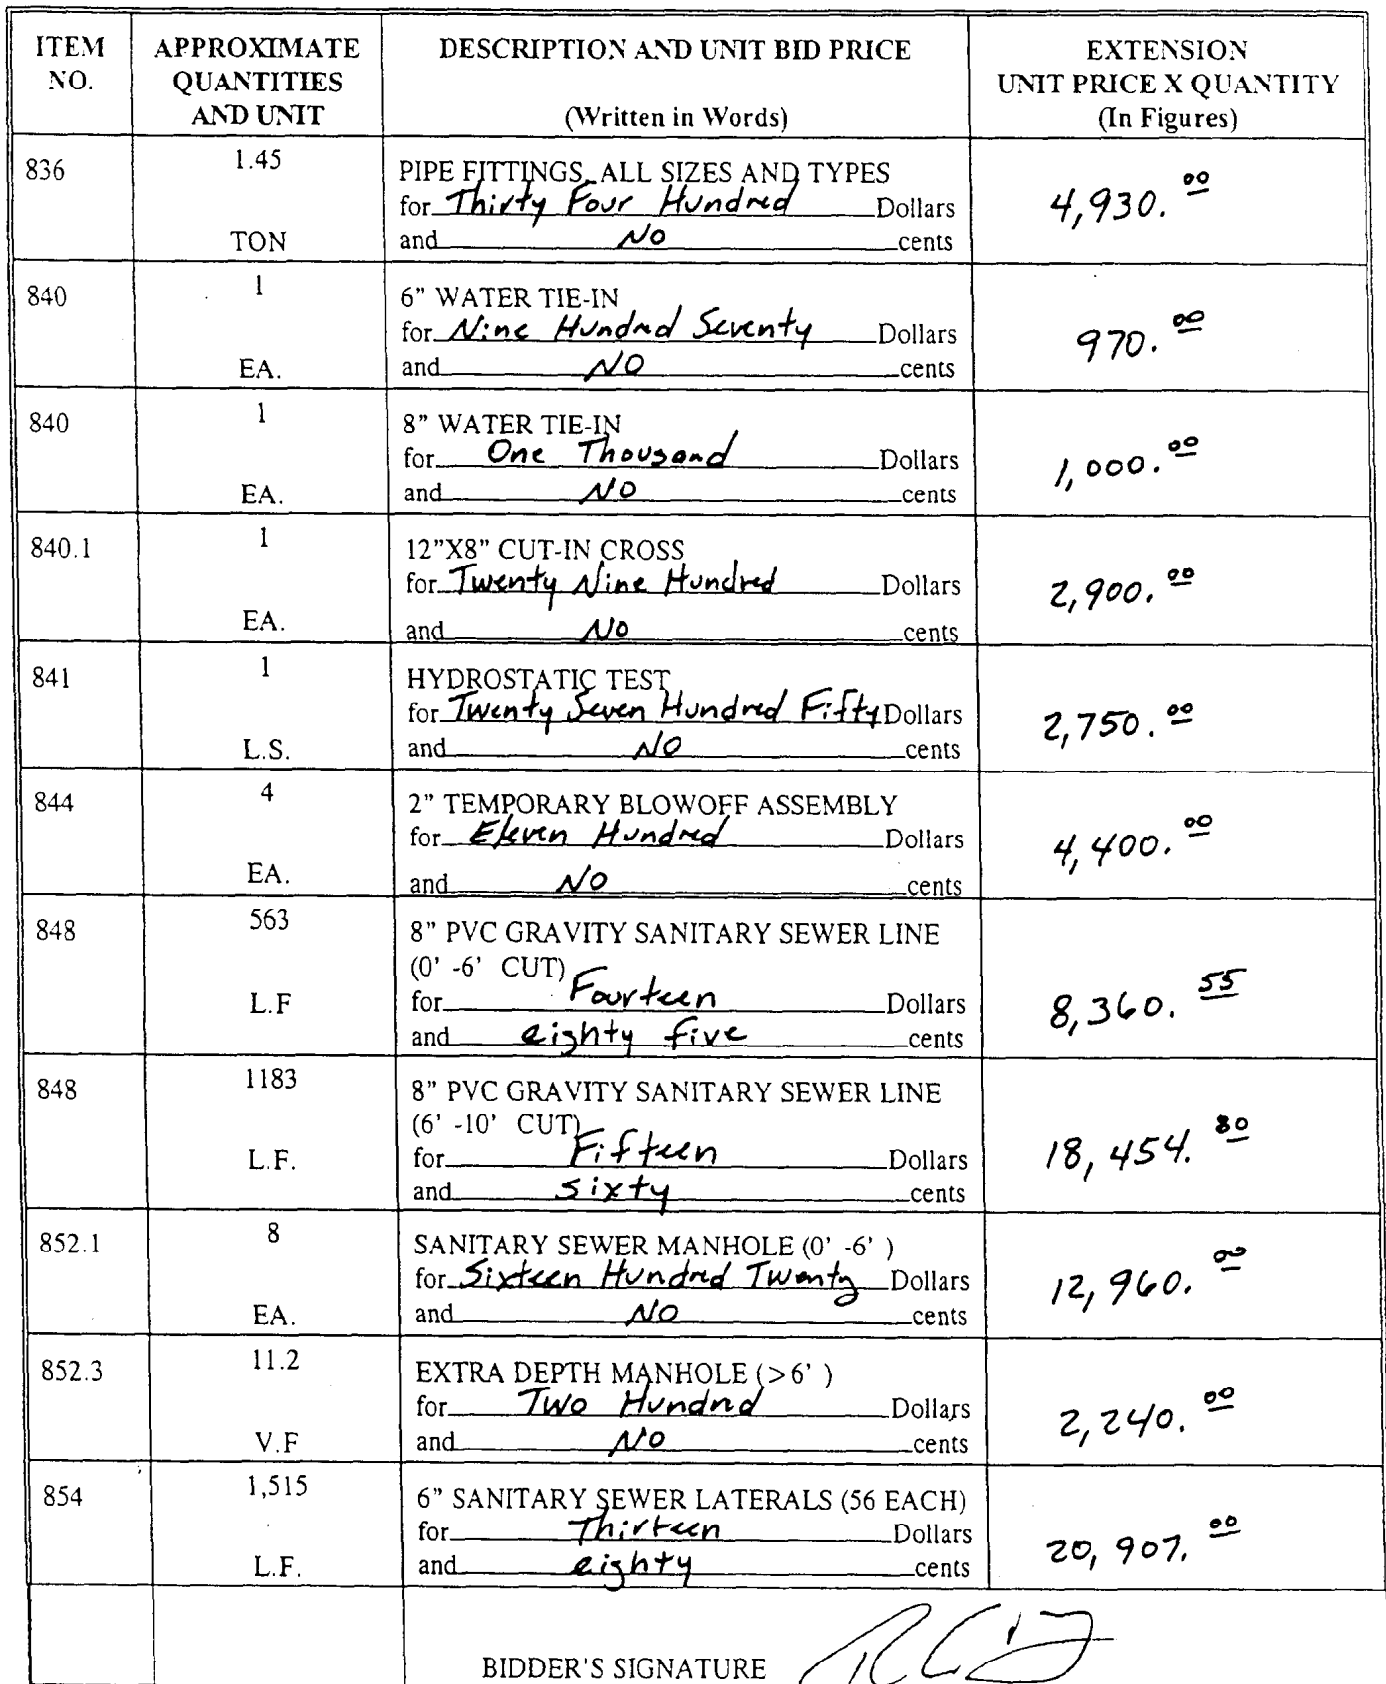 ITEM NO. APPROXIMATE QUANTITIES AND UNIT DESCRIPTION AND UNIT BID PRICE (Written in Words) EXTENSION UNIT PRICE X QUANTITY (In Figures)
836 1.45 TON PIPE FITTINGS, ALL SIZES AND TYPES
for Thirty Four Hundred Dollars
and NO cents
4,930.00
840 1 EA. 6" WATER TIE-IN
for Nine Hundred Seventy Dollars
and NO cents
970.00
840 1 EA. 8" WATER TIE-IN
for One Thousand Dollars
and NO cents
1,000.00
840.1 1 EA. 12"X8" CUT-IN CROSS
for Twenty Nine Hundred Dollars
and No cents
2,900.00
841 1 L.S. HYDROSTATIC TEST
for Twenty Seven Hundred Fifty Dollars
and NO cents
2,750.00
844 4 EA. 2" TEMPORARY BLOWOFF ASSEMBLY
for Eleven Hundred Dollars
and NO cents
4,400.00
848 563 L.F 8" PVC GRAVITY SANITARY SEWER LINE
(0' -6' CUT)
for Fourteen Dollars
and eighty five cents
8,360.55
848 1183 L.F. 8" PVC GRAVITY SANITARY SEWER LINE
(6' -10' CUT)
for Fifteen Dollars
and sixty cents
18,454.80
852.1 8 EA. SANITARY SEWER MANHOLE (0' -6' )
for Sixteen Hundred Twenty Dollars
and NO cents
12,960.00
852.3 11.2 V.F EXTRA DEPTH MANHOLE (>6' )
for Two Hundred Dollars
and NO cents
2,240.00
854 1,515 L.F. 6" SANITARY SEWER LATERALS (56 EACH)
for Thirteen Dollars
and eighty cents
20,907.00
BIDDER'S SIGNATURE